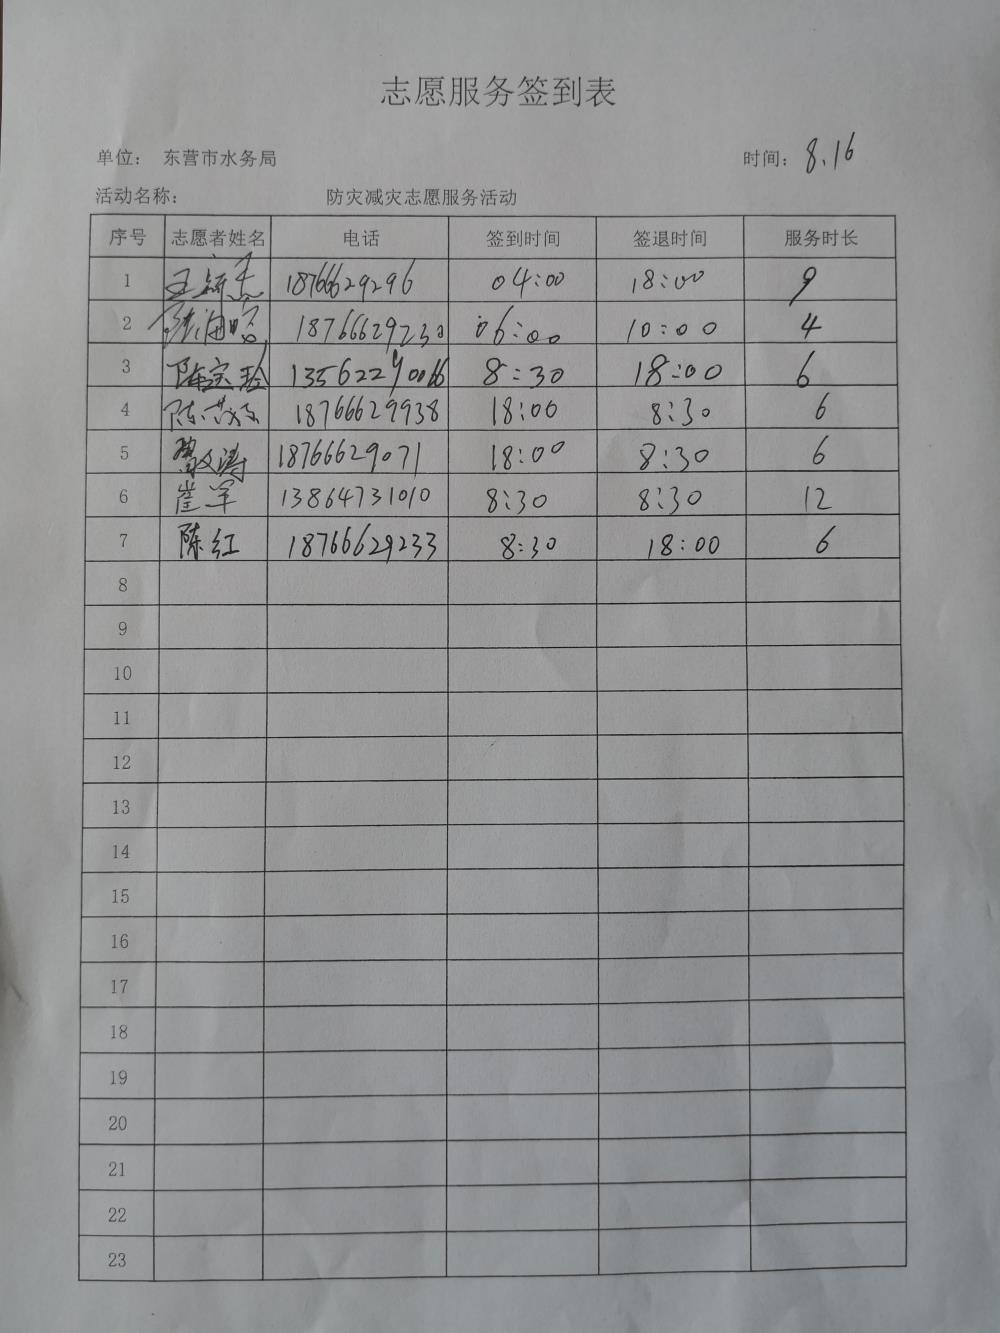 志愿服务签到表
单位： 东营市水务局 时间：8.16
活动名称： 防灾减灾志愿服务活动
序号 志愿者姓名 电话 签到时间 签退时间 服务时长
1 18766629296 04:00 18:00 9
2 18766629230 06:00 10:00 4
3 陈宝玲 8:30 18:00 6
4 18766629938 18:00 8:30 6
5 18766629071 18:00 8:30 6
6 崔军 13864731010 8:30 8:30 12
7 陈红 18766629233 8:30 18:00 6
8
9
10
11
12
13
14
15
16
17
18
19
20
21
22
23